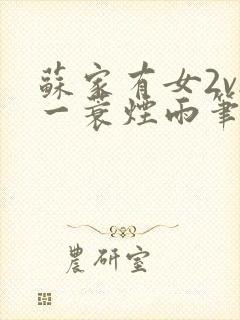 蘇家有女2v
一蓑煙雨筆
農研室